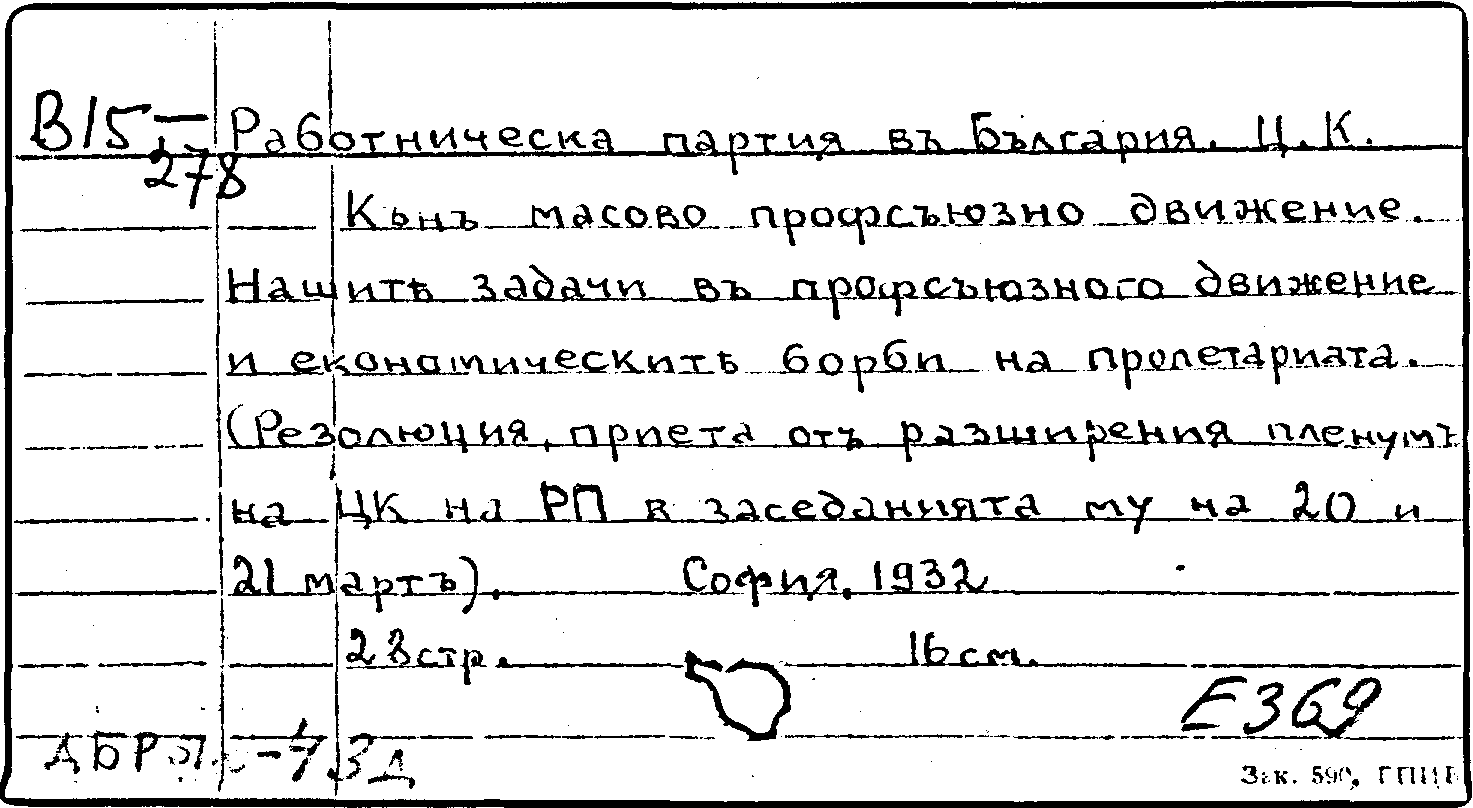 В15,—
278
Работническа партия въ България. Ц.К.
Кънъ масово профсъюзно движение.
Нашитѣ задачи въ профсъюзного движение
и економическитѣ борби на пролетариата.
(Резолюция, приета отъ разширения пленумъ
на ЦК на РП в заседанията му на 20 и
21 мартъ). София, 1932
28стр. 16см.
Е369
Зак. 590,